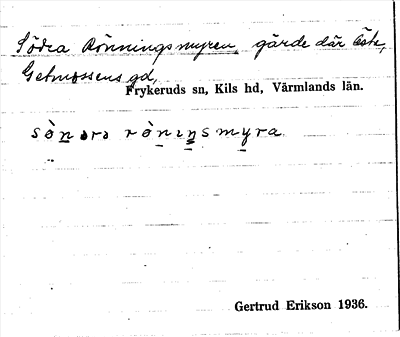 Södra Rönningsmyren, gärde där öste,
Getmossens gd,
Frykeruds sn, Kils hd, Värmlands län.
sò̀ndrə rò̀nıŋsmyra
Gertrud Erikson 1936.